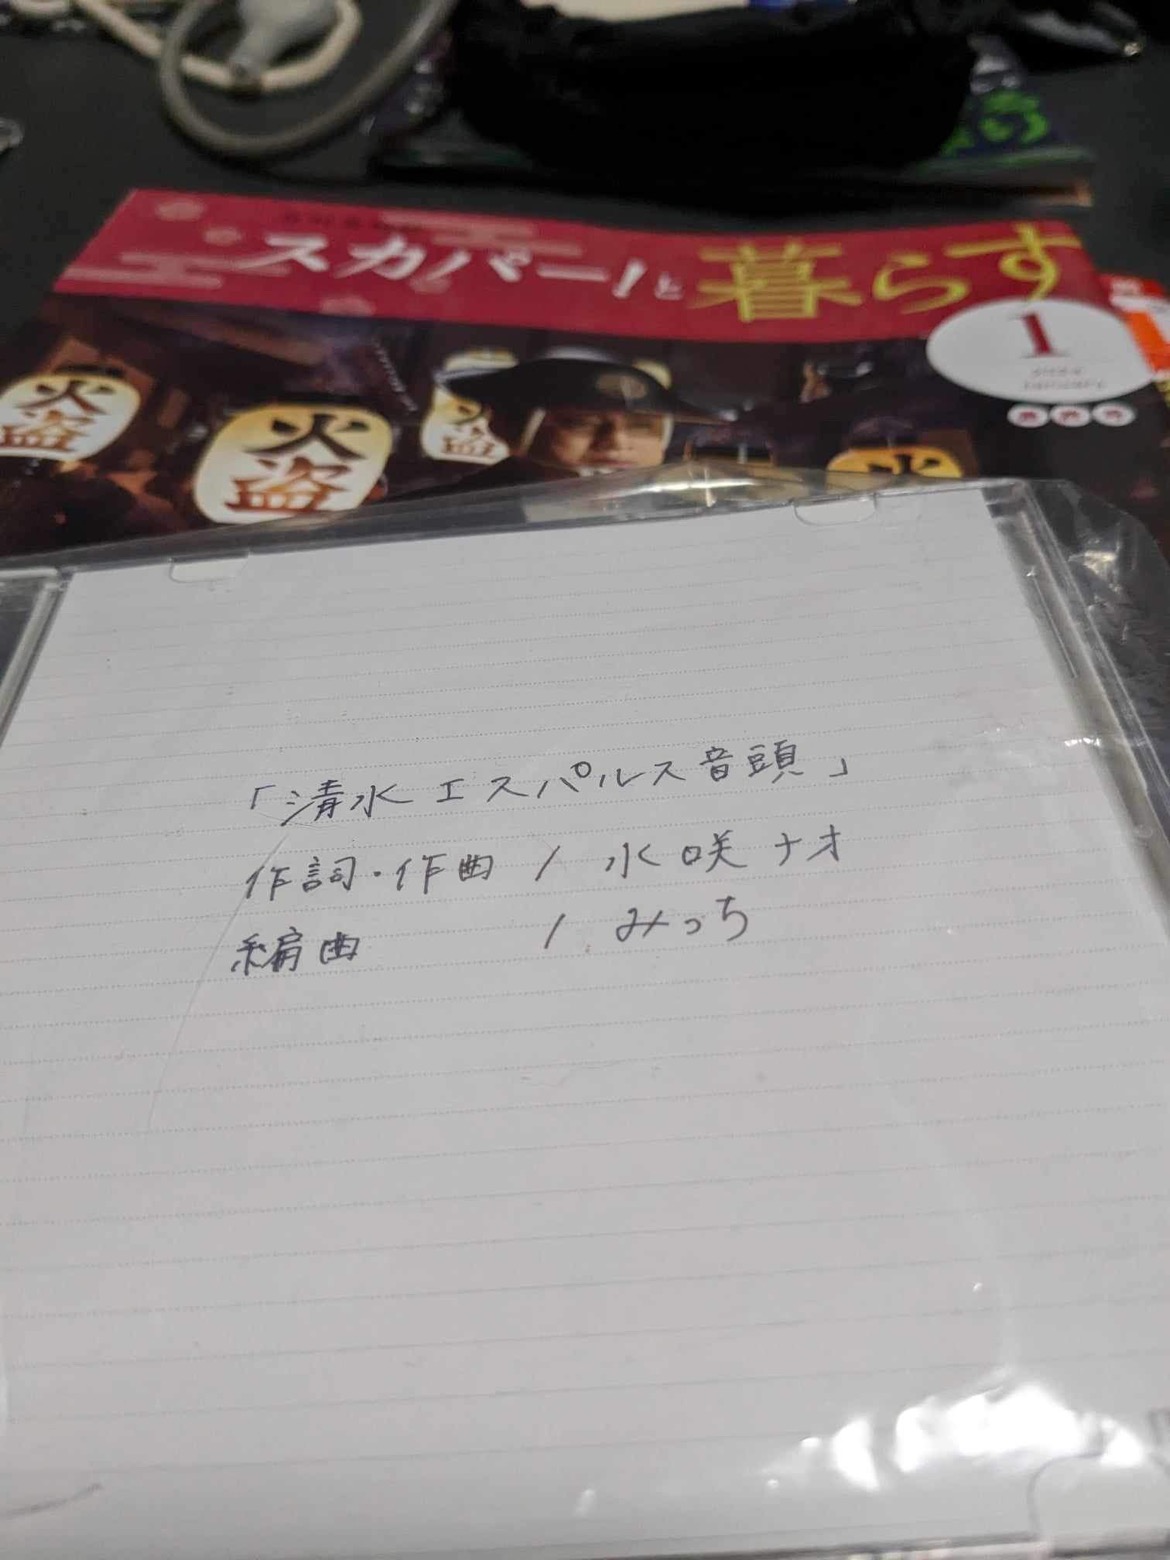 スカパー!と暮らす
1
火盗
火盗
火盗
「清水エスパルス音頭」
作詞・作曲 / 水咲ナオ
編曲 / みっち